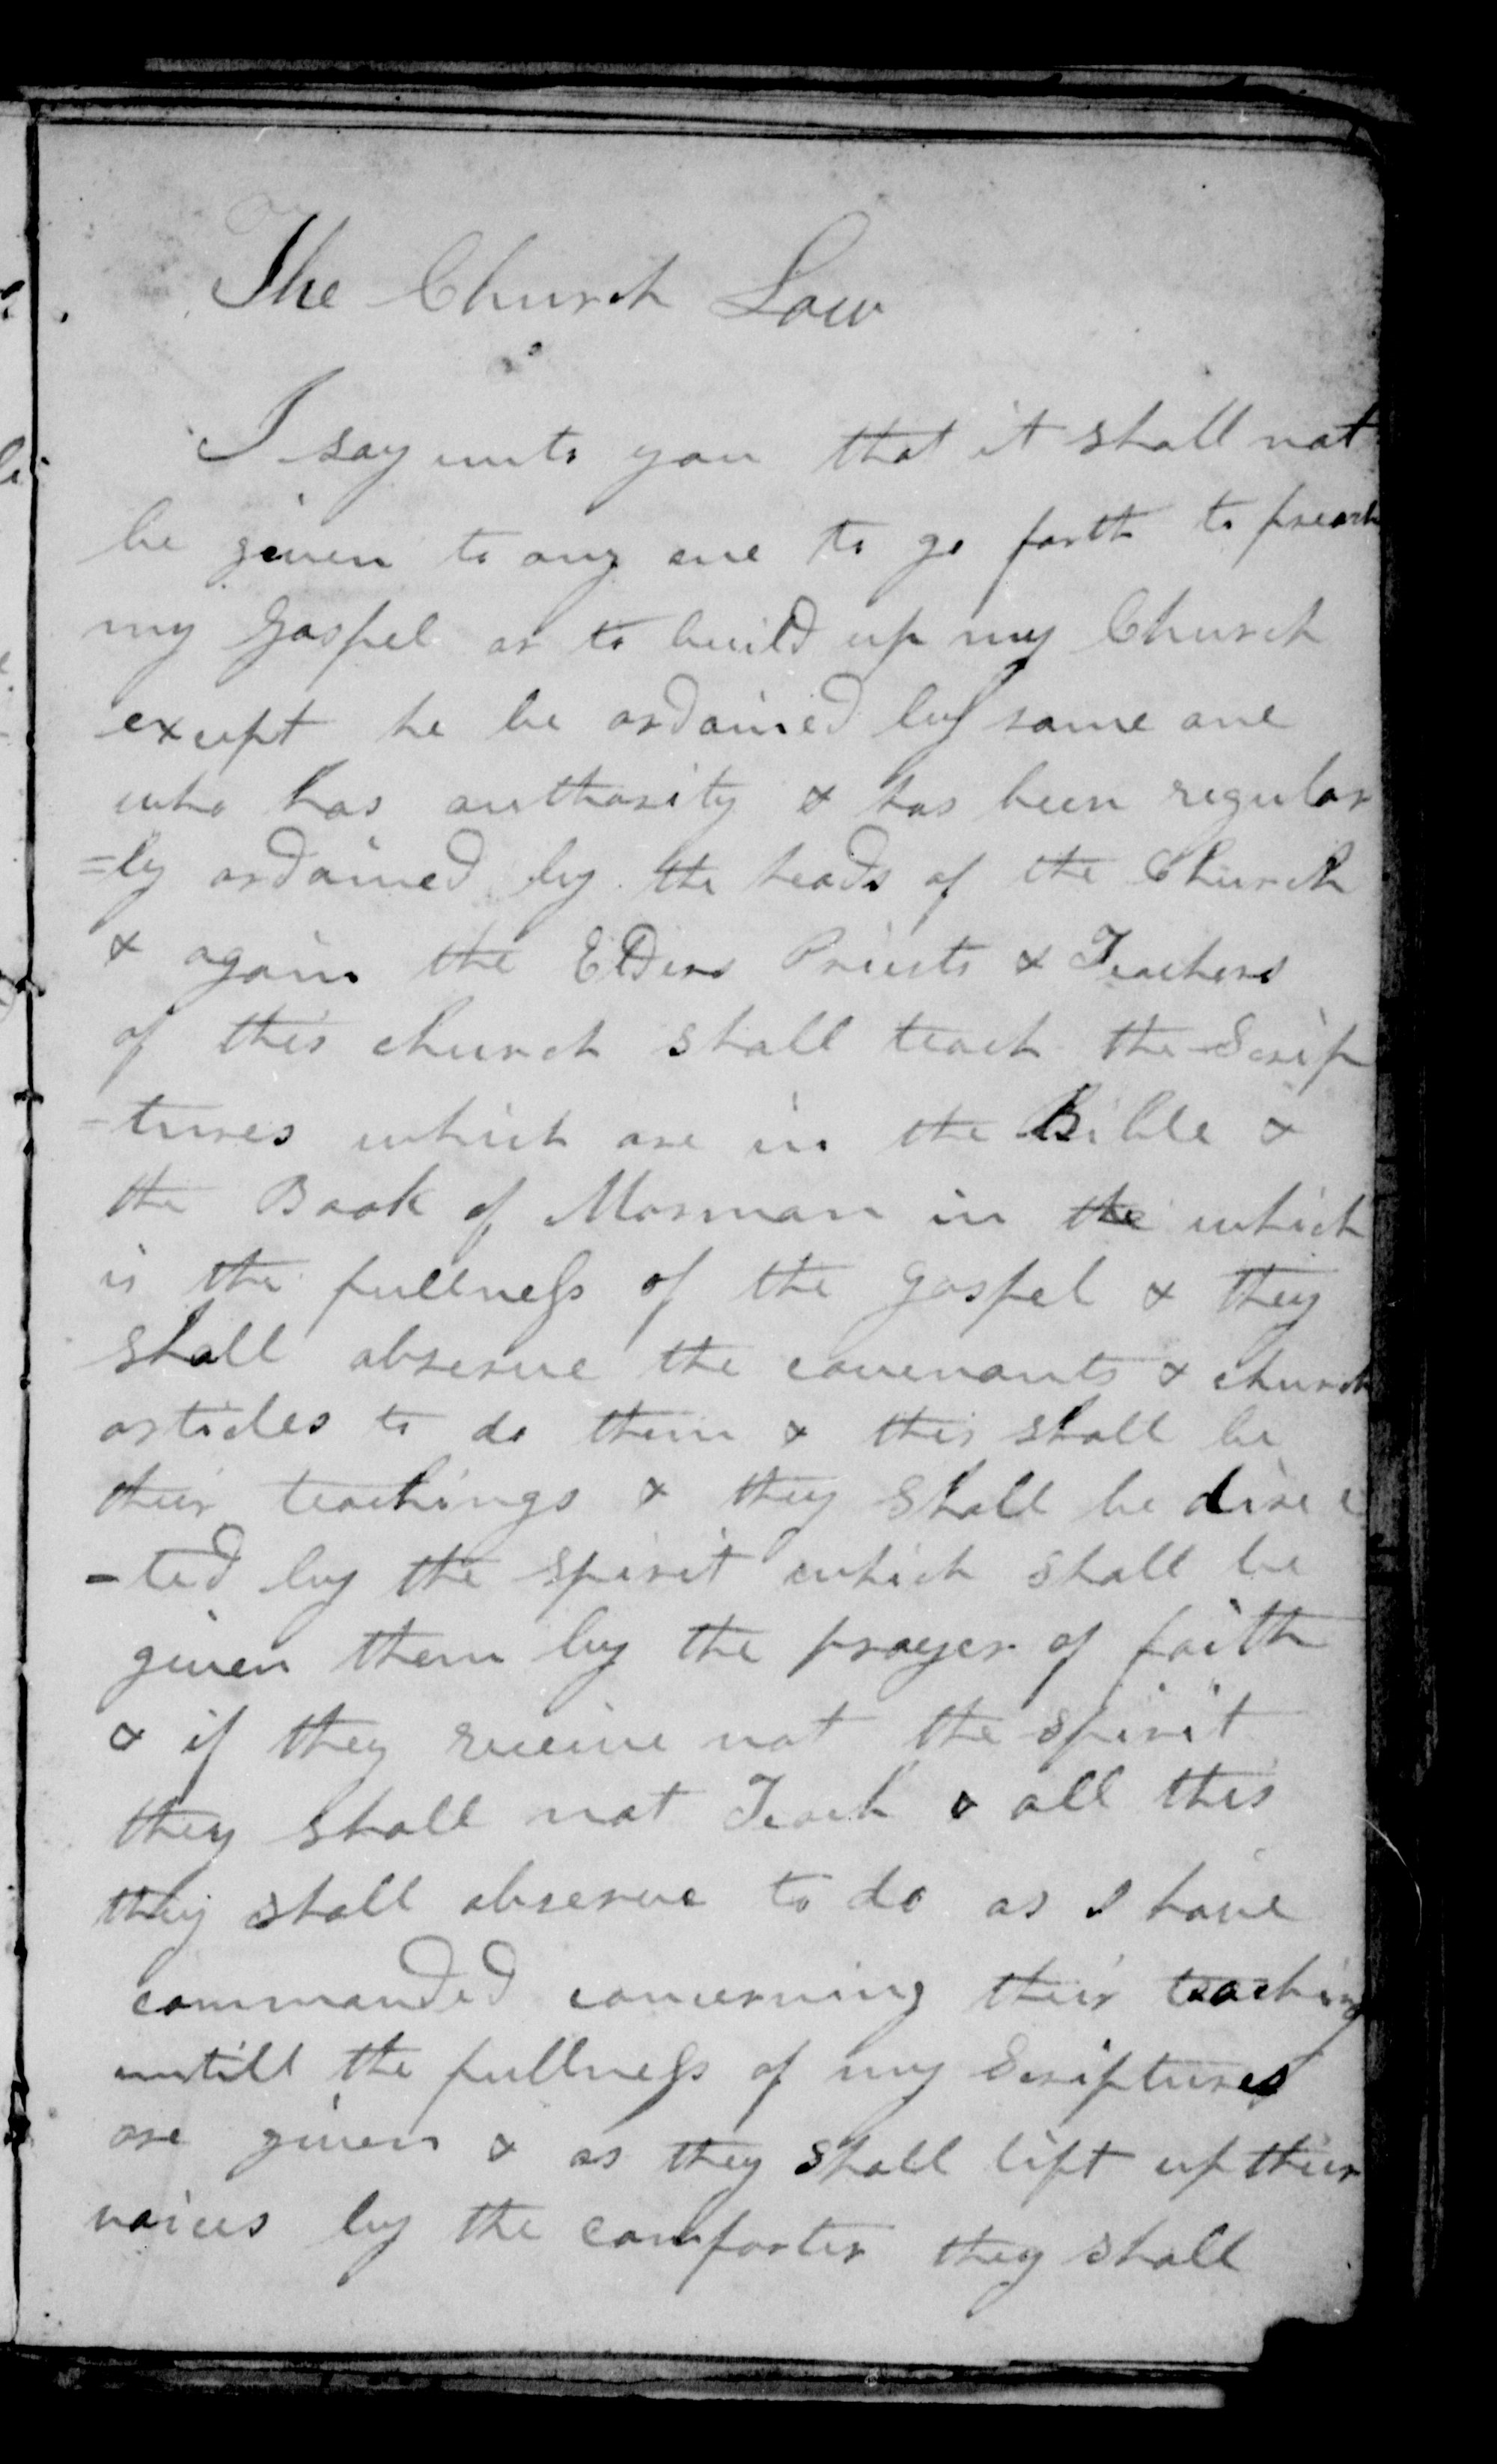 The Church Law
I say unto you that it shall not
be given to any one to go forth to preach
my Gospel or to build up my Church
except he be ordained by some one
who has authority & has been regular
=ly ordained by the heads of the Church
& again the Elders Priests & Teachers
of this church shall teach the Scrip
-tures which are in the Bible &
the Book of Mormon in the which
is the fullness of the gospel & they
shall observe the covenants & church
articles to do them & this shall be
their teachings & they shall be direc
-ted by the spirit which shall be
given them by the prayer of faith
& if they receive not the spirit
they shall not Teach & all this
they shall observe to do as I have
commanded concerning their teaching
untill the fullness of my Scriptures
are given & as they shall lift up their
voices by the comforter they shall